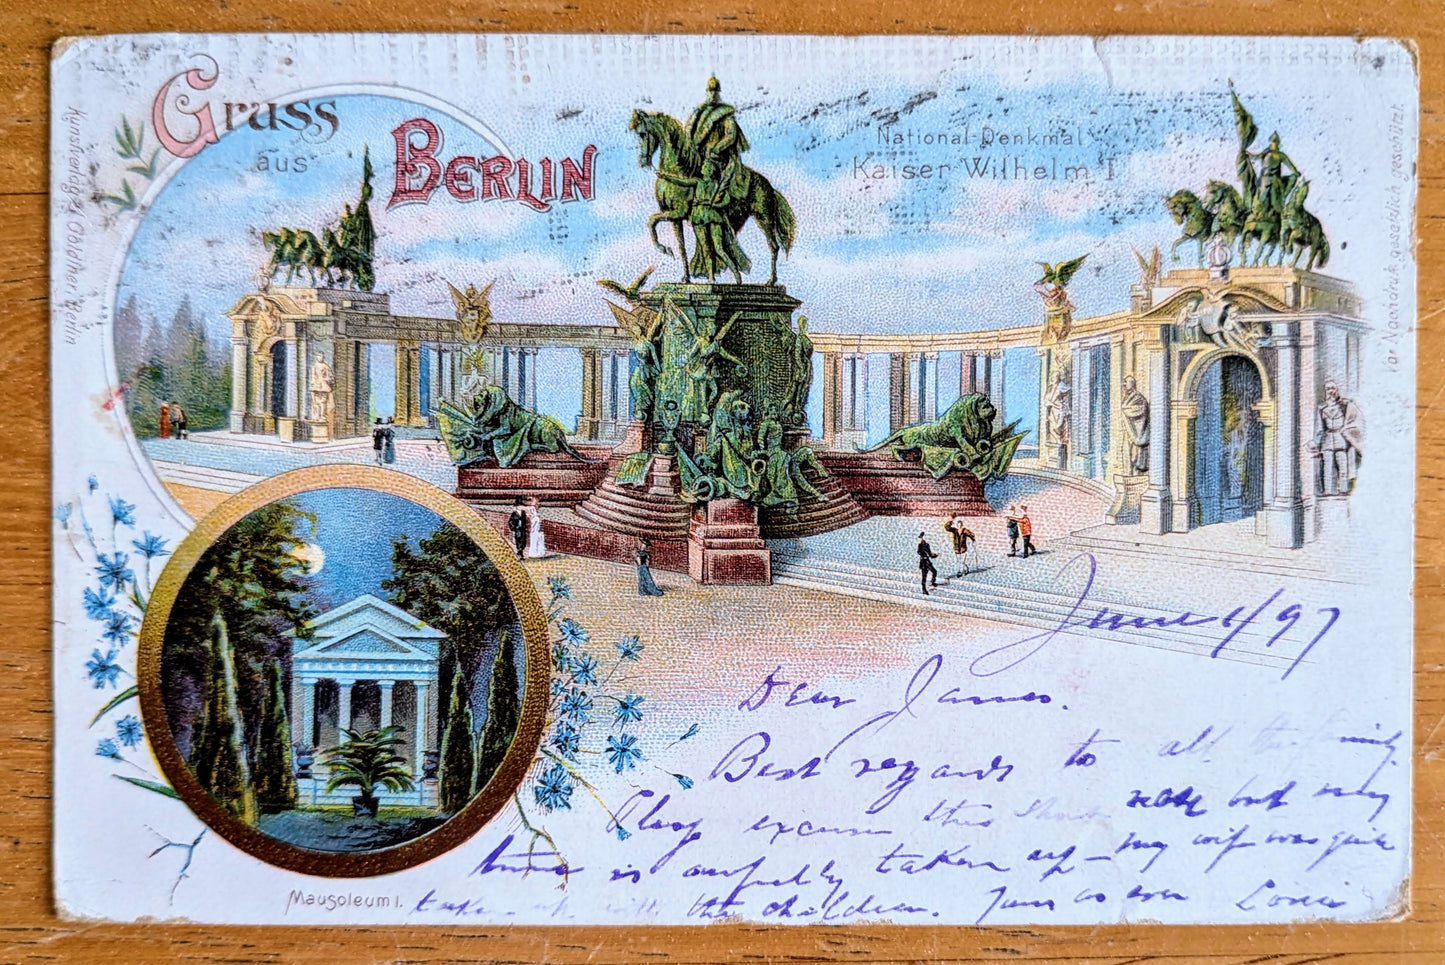 Gruss
aus
BERLIN
National-Denkmal
Kaiser Wilhelm I
Kunstverlag
Berlin
Vor Nachdruck gesetzlich geschützt.
Mausoleum I.
June 1/97
Dear James.
Best regards to all the family.
Pleas excuse this short note but my
time is awfully taken up – my wife was quite
taken up with the children. Yours as ever Louis